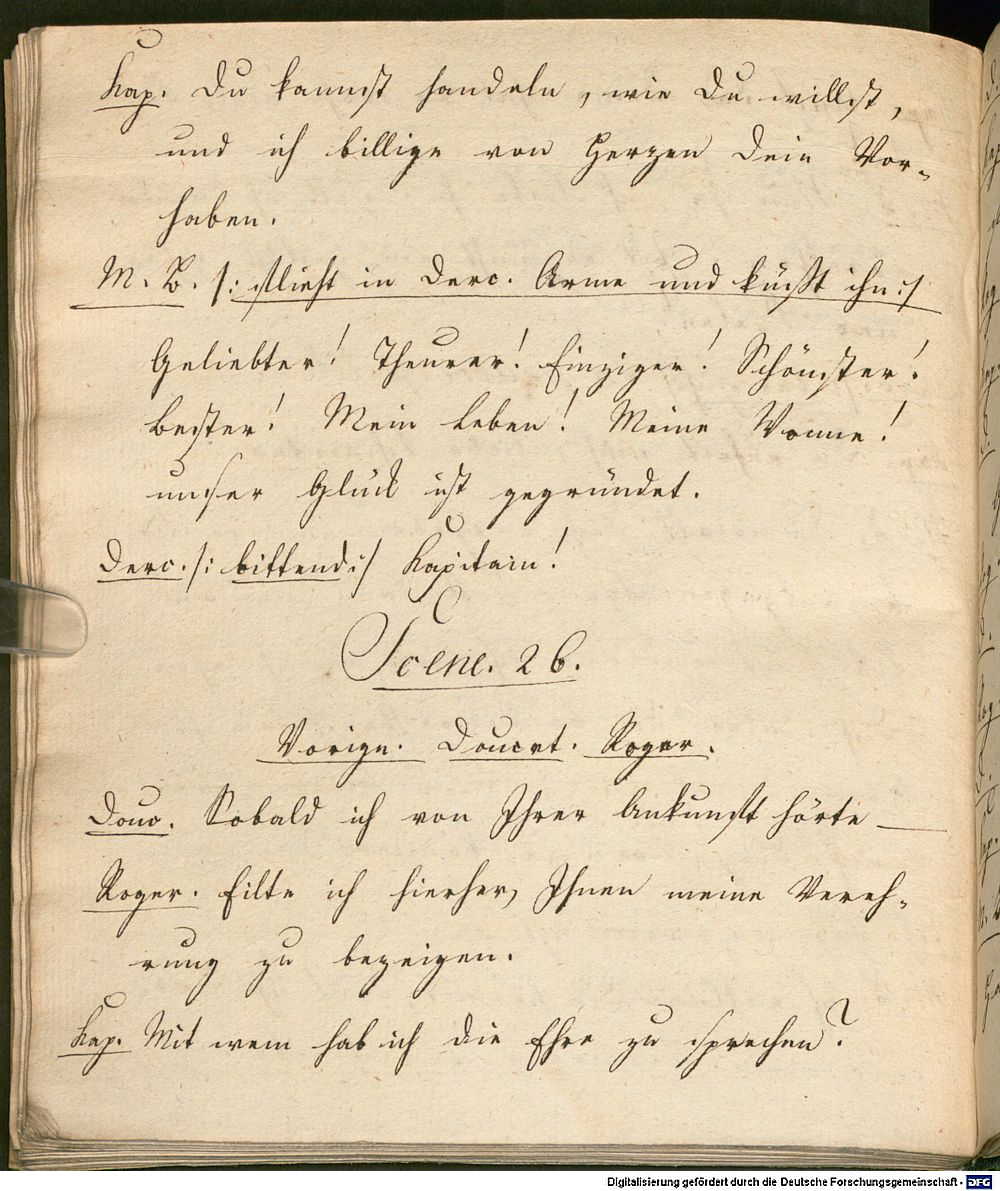 Kap. Du kannst handeln, wie Du willst,
und ich billige von Herzen dein Vor-
haben.
M. B. /: fliegt in Derc. Arme und küßt ihn :/
Geliebter! Theurer! Einziger! Schönster!
bester! Mein Leben! Meine Wonne!
unser Glück ist gegründet.
Derc. /: bittend :/ Kapitain!
Scene. 26.
Vorige. Doucet. Roger.
Douc. Sobald ich von Ihrer Ankunft hörte —
Roger. Eilte ich hierher, Ihnen meine Vereh-
rung zu bezeigen.
Kap. Mit wem hab ich die Ehre zu sprechen?
Digitalisierung gefördert durch die Deutsche Forschungsgemeinschaft - DFG